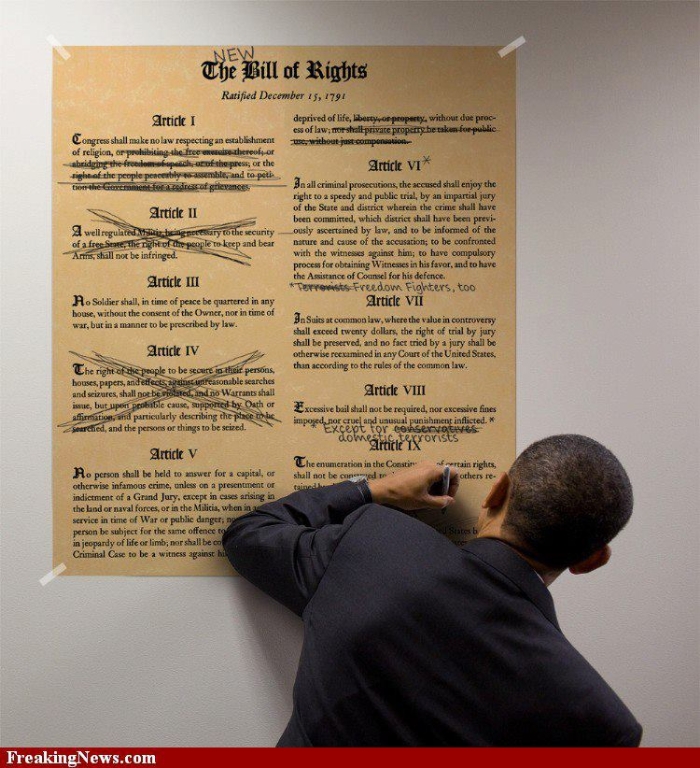 NEW
The Bill of Rights
Ratified December 15, 1791
Article I
Congress shall make no law respecting an establishment
of religion, or prohibiting the free exercise thereof; or
abridging the freedom of speech, or of the press; or the
right of the people peaceably to assemble, and to peti-
tion the Government for a redress of grievances.
Article II
A well regulated Militia, being necessary to the security
of a free State, the right of the people to keep and bear
Arms, shall not be infringed.
Article III
No Soldier shall, in time of peace be quartered in any
house, without the consent of the Owner, nor in time of
war, but in a manner to be prescribed by law.
Article IV
The right of the people to be secure in their persons,
houses, papers, and effects, against unreasonable searches
and seizures, shall not be violated, and no Warrants shall
issue, but upon probable cause, supported by Oath or
affirmation, and particularly describing the place to be
searched, and the persons or things to be seized.
Article V
No person shall be held to answer for a capital, or
otherwise infamous crime, unless on a presentment or
indictment of a Grand Jury, except in cases arising in
the land or naval forces, or in the Militia, when in a
service in time of War or public danger; no
person be subject for the same offence to
in jeopardy of life or limb; nor shall be co
Criminal Case to be a witness against hi
deprived of life, liberty, or property, without due proc-
ess of law; nor shall private property be taken for public
use, without just compensation.
Article VI*
In all criminal prosecutions, the accused shall enjoy the
right to a speedy and public trial, by an impartial jury
of the State and district wherein the crime shall have
been committed, which district shall have been previ-
ously ascertained by law, and to be informed of the
nature and cause of the accusation; to be confronted
with the witnesses against him; to have compulsory
process for obtaining Witnesses in his favor, and to have
the Assistance of Counsel for his defence.
*Terrorists Freedom Fighters, too
Article VII
In Suits at common law, where the value in controversy
shall exceed twenty dollars, the right of trial by jury
shall be preserved, and no fact tried by a jury shall be
otherwise reexamined in any Court of the United States,
than according to the rules of the common law.
Article VIII
Excessive bail shall not be required, nor excessive fines
imposed, nor cruel and unusual punishment inflicted. *
* Except for conservatives
domestic terrorists
Article IX
The enumeration in the Constitu of certain rights,
shall not be con others re-
tained b
States
FreakingNews.com